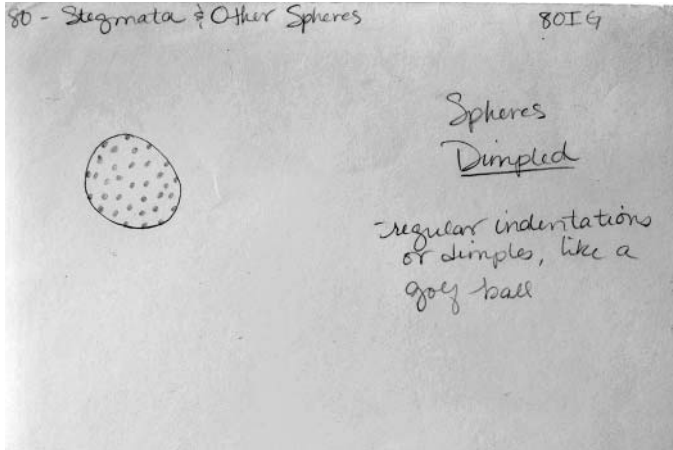 80 - Stegmata & Other Spheres
80IG
Spheres
Dimpled
-regular indentations
or dimples, like a
golf ball